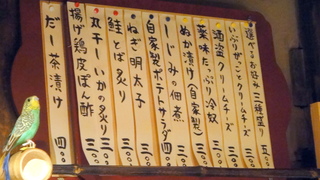 選べるお好み三種盛り 五〇〇
いぶりがっことクリームチーズ 三〇〇
酒盗クリームチーズ 三〇〇
薬味たっぷり冷奴 三〇〇
ぬか漬け(自家製) 三〇〇
しじみの佃煮 三〇〇
自家製ポテトサラダ 四〇〇
ねぎ明太子 三〇〇
鮭とば炙り 三〇〇
丸干しいかの炙り 三〇〇
揚げ鶏皮ぽん酢 三〇〇
だし茶漬け 四〇〇